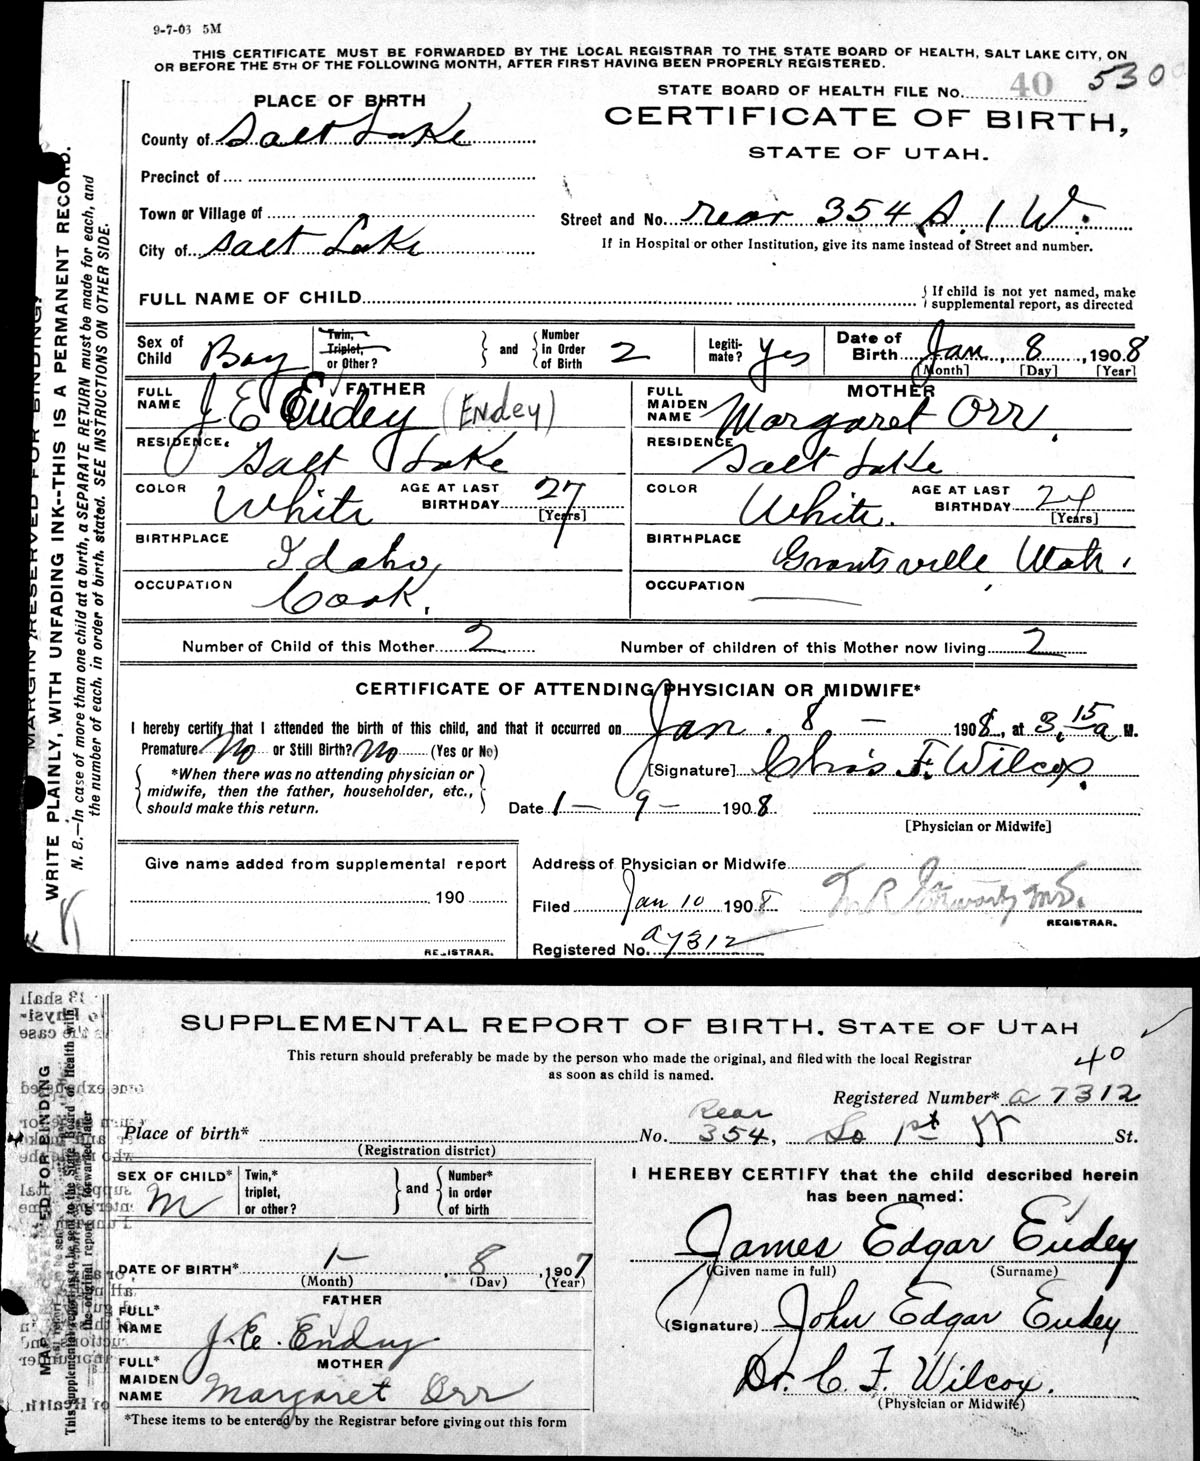 9-7-03 5M
THIS CERTIFICATE MUST BE FORWARDED BY THE LOCAL REGISTRAR TO THE STATE BOARD OF HEALTH, SALT LAKE CITY, ON
OR BEFORE THE 5TH OF THE FOLLOWING MONTH, AFTER FIRST HAVING BEEN PROPERLY REGISTERED.
STATE BOARD OF HEALTH FILE No. 40 530
CERTIFICATE OF BIRTH,
STATE OF UTAH.
PLACE OF BIRTH
County of Salt Lake
Precinct of
Town or Village of
City of Salt Lake
Street and No. rear 354 S. 1 W.
If in Hospital or other Institution, give its name instead of Street and number.
FULL NAME OF CHILD
If child is not yet named, make
supplemental report, as directed
Sex of Child Boy
Twin, Triplet, or Other? and Number in Order of Birth 2
Legitimate? Yes
Date of Birth Jan. 8, 1908
[Month] [Day] [Year]
FATHER
FULL NAME J E Eudey (Endey)
RESIDENCE Salt Lake
COLOR White AGE AT LAST BIRTHDAY 27 [Years]
BIRTHPLACE Idaho
OCCUPATION Cook.
MOTHER
FULL MAIDEN NAME Margaret Orr.
RESIDENCE Salt Lake
COLOR White. AGE AT LAST BIRTHDAY [Years]
BIRTHPLACE Grantsville, Utah.
OCCUPATION
Number of Child of this Mother 2 Number of children of this Mother now living 2
CERTIFICATE OF ATTENDING PHYSICIAN OR MIDWIFE*
I hereby certify that I attended the birth of this child, and that it occurred on Jan. 8 – 1908, at 3.15 a M.
Premature No or Still Birth? No (Yes or No)
*When there was no attending physician or
midwife, then the father, householder, etc.,
should make this return.
[Signature] Chas F. Wilcox.
Date 1 – 9 – 1908
[Physician or Midwife]
Give name added from supplemental report
190
REGISTRAR.
Address of Physician or Midwife
Filed Jan 10 1908
REGISTRAR.
Registered No. a7312
MARGIN RESERVED FOR BINDING
WRITE PLAINLY, WITH UNFADING INK--THIS IS A PERMANENT RECORD.
N. B.—In case of more than one child at a birth, a SEPARATE RETURN must be made for each, and
the number of each, in order of birth, stated. SEE INSTRUCTIONS ON OTHER SIDE.
SUPPLEMENTAL REPORT OF BIRTH, STATE OF UTAH
This return should preferably be made by the person who made the original, and filed with the local Registrar
as soon as child is named.
40
Registered Number* a 7312
Place of birth* No. Rear 354, So 1st W St.
(Registration district)
SEX OF CHILD* M
Twin,* triplet, or other? and Number* in order of birth
DATE OF BIRTH* 1 – 8, 1907
(Month) (Day) (Year)
FATHER
FULL* NAME J. E. Endey
MOTHER
FULL* MAIDEN NAME Margaret Orr
*These items to be entered by the Registrar before giving out this form
I HEREBY CERTIFY that the child described herein
has been named:
James Edgar Eudey
(Given name in full) (Surname)
(Signature) John Edgar Eudey
Dr. C. F. Wilcox.
(Physician or Midwife)